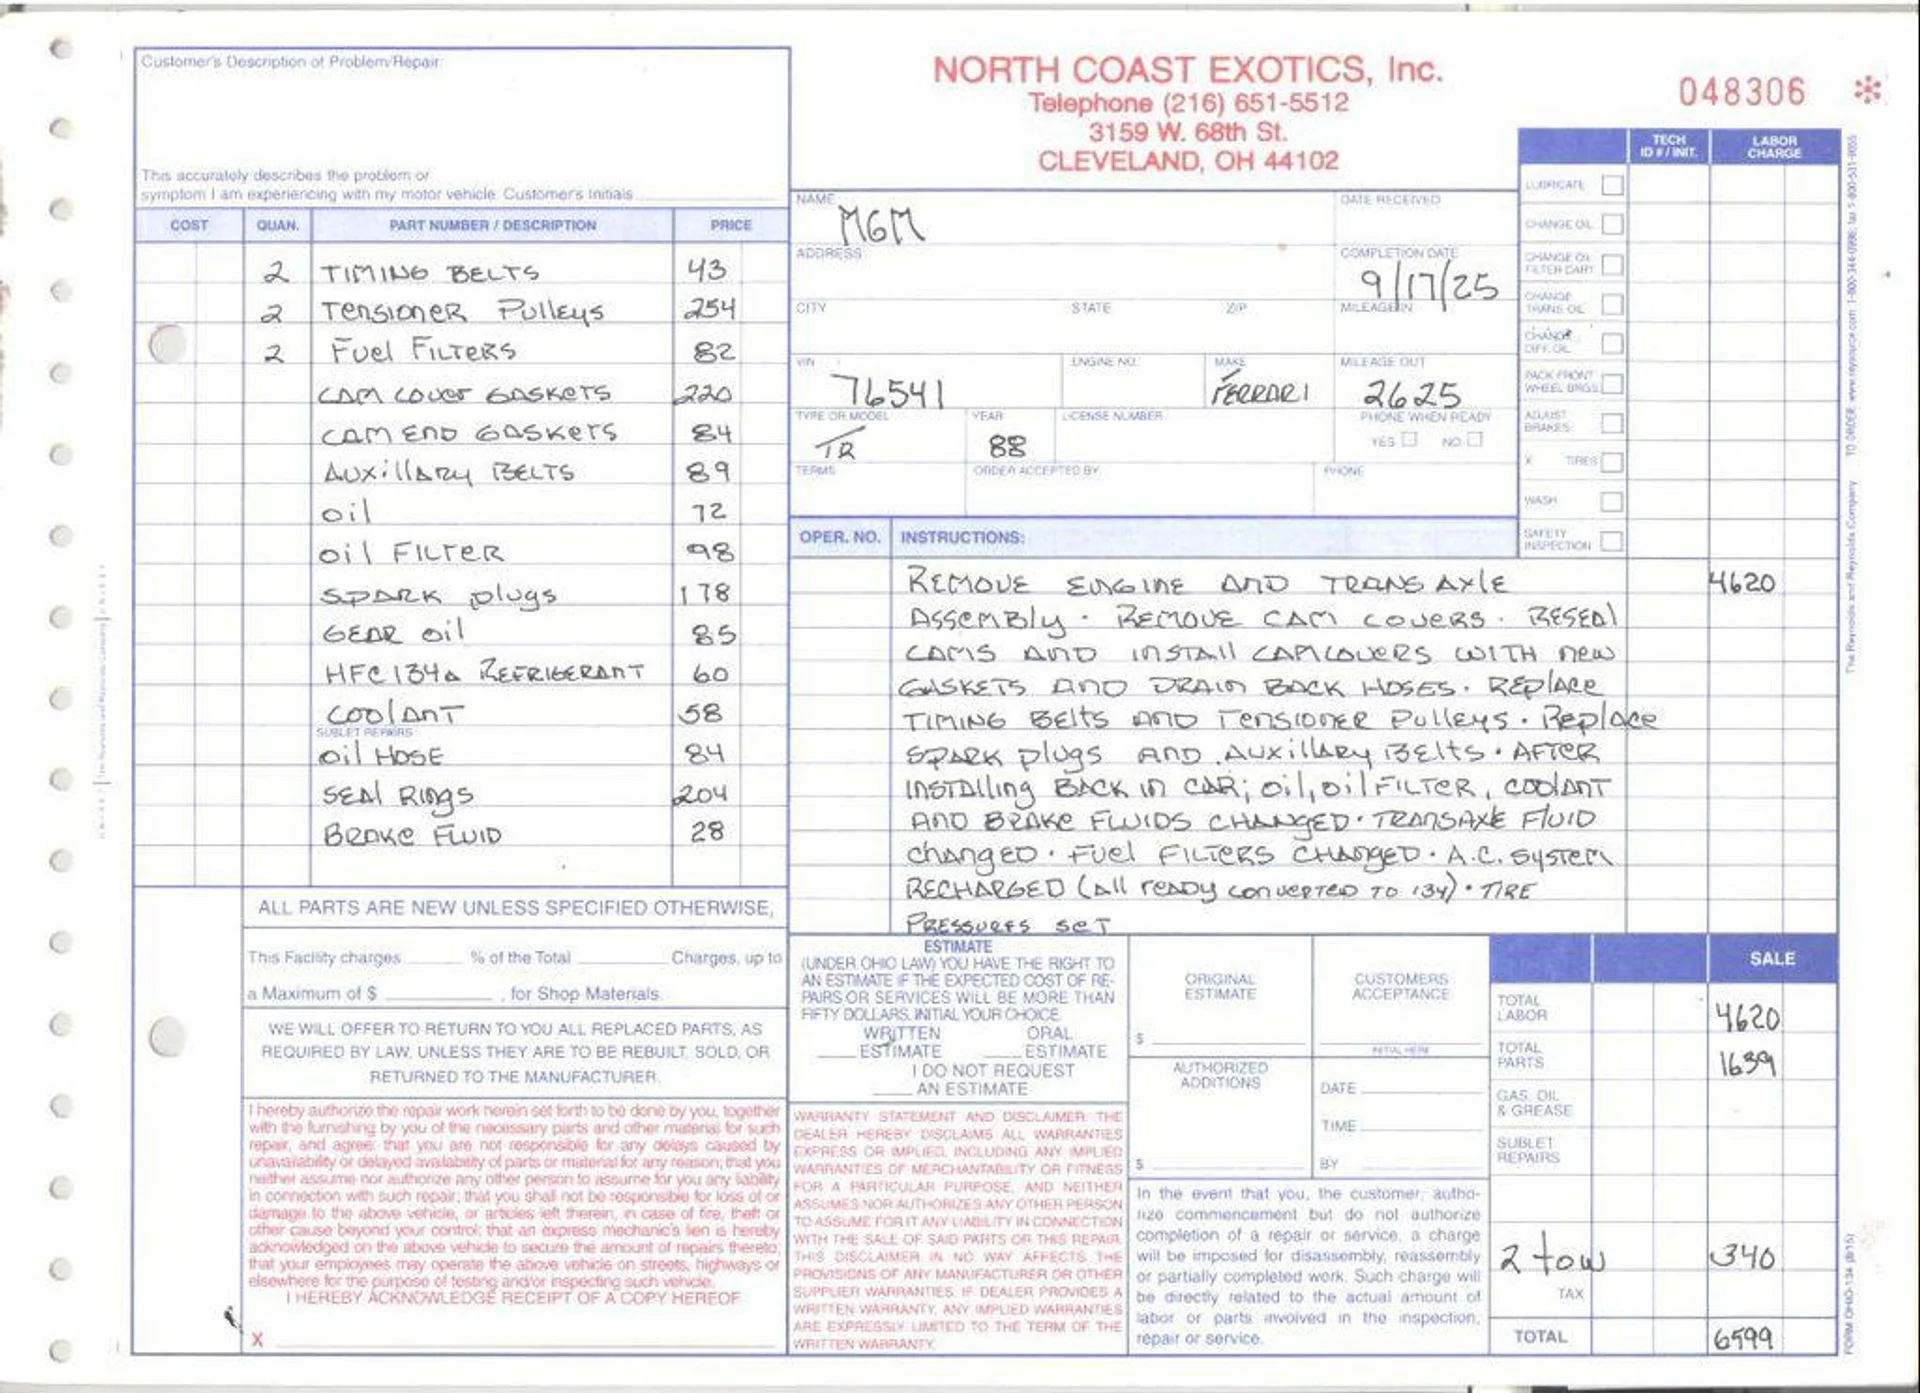 Customer's Description of Problem/Repair:
This accurately describes the problem or
symptom I am experiencing with my motor vehicle. Customer's Initials
COST QUAN. PART NUMBER / DESCRIPTION PRICE
2 TIMING BELTS 43
2 Tensioner Pulleys 254
2 Fuel Filters 82
CAM COVER GASKETS 220
CAM END GASKETS 84
AUXILLARY BELTS 89
oil 72
oil FILTER 98
SPARK plugs 178
GEAR oil 85
HFC134a REFRIGERANT 60
COOLANT 58
SUBLET REPAIRS
oil HOSE 84
SEAL RINGS 204
BRAKE FLUID 28
ALL PARTS ARE NEW UNLESS SPECIFIED OTHERWISE,
This Facility charges % of the Total Charges, up to
a Maximum of $ , for Shop Materials.
WE WILL OFFER TO RETURN TO YOU ALL REPLACED PARTS, AS
REQUIRED BY LAW, UNLESS THEY ARE TO BE REBUILT, SOLD, OR
RETURNED TO THE MANUFACTURER.
I hereby authorize the repair work herein set forth to be done by you, together
with the furnishing by you of the necessary parts and other material for such
repair, and agree: that you are not responsible for any delays caused by
unavailability or delayed availability of parts or material for any reason; that you
neither assume nor authorize any other person to assume for you any liability
in connection with such repair; that you shall not be responsible for loss of or
damage to the above vehicle, or articles left therein, in case of fire, theft or
other cause beyond your control; that an express mechanic's lien is hereby
acknowledged on the above vehicle to secure the amount of repairs thereto;
that your employees may operate the above vehicle on streets, highways or
elsewhere for the purpose of testing and/or inspecting such vehicle.
I HEREBY ACKNOWLEDGE RECEIPT OF A COPY HEREOF
X
NORTH COAST EXOTICS, Inc.
Telephone (216) 651-5512
3159 W. 68th St.
CLEVELAND, OH 44102
048306 *
NAME MGM DATE RECEIVED
ADDRESS COMPLETION DATE 9/17/25
CITY STATE ZIP MILEAGE IN
VIN 76541 ENGINE NO. MAKE FERRARI MILEAGE OUT 2625
TYPE OR MODEL TR YEAR 88 LICENSE NUMBER PHONE WHEN READY
YES NO
TERMS ORDER ACCEPTED BY PHONE
TECH ID # / INIT. LABOR CHARGE
LUBRICATE
CHANGE OIL
CHANGE OIL FILTER CART
CHANGE TRANS OIL
CHANGE DIFF. OIL
PACK FRONT WHEEL BRGS
ADJUST BRAKES
X TIRES
WASH
SAFETY INSPECTION
OPER. NO. INSTRUCTIONS:
REMOVE ENGINE AND TRANS AXLE 4620
Assembly. REMOVE CAM COVERS. RESEAL
CAMS AND INSTALL CAMCOVERS WITH new
GASKETS AND DRAIN BACK HOSES. REPLACE
TIMING Belts AND Tensioner Pulleys. Replace
SPARK plugs AND AUXILLARY BELTS. AFTER
INSTAlling BACK IN CAR; oil, oil FILTER, COOLANT
AND BRAKE FLUIDS CHANGED. TRANSAXLE FLUID
changed. Fuel FILTERS CHANGED. A.C. SYSTEM
RECHARGED (All ready converted to 134). TIRE
PRESSURES SET
ESTIMATE
(UNDER OHIO LAW) YOU HAVE THE RIGHT TO
AN ESTIMATE IF THE EXPECTED COST OF RE-
PAIRS OR SERVICES WILL BE MORE THAN
FIFTY DOLLARS. INITIAL YOUR CHOICE.
WRITTEN ORAL
ESTIMATE ESTIMATE
I DO NOT REQUEST
AN ESTIMATE
WARRANTY STATEMENT AND DISCLAIMER: THE
DEALER HEREBY DISCLAIMS ALL WARRANTIES
EXPRESS OR IMPLIED, INCLUDING ANY IMPLIED
WARRANTIES OF MERCHANTABILITY OR FITNESS
FOR A PARTICULAR PURPOSE, AND NEITHER
ASSUMES NOR AUTHORIZES ANY OTHER PERSON
TO ASSUME FOR IT ANY LIABILITY IN CONNECTION
WITH THE SALE OF SAID PARTS OR THIS REPAIR.
THIS DISCLAIMER IN NO WAY AFFECTS THE
PROVISIONS OF ANY MANUFACTURER OR OTHER
SUPPLIER WARRANTIES. IF DEALER PROVIDES A
WRITTEN WARRANTY, ANY IMPLIED WARRANTIES
ARE EXPRESSLY LIMITED TO THE TERM OF THE
WRITTEN WARRANTY.
ORIGINAL ESTIMATE
$
CUSTOMERS ACCEPTANCE
INITIAL HERE
AUTHORIZED ADDITIONS
$
DATE
TIME
BY
In the event that you, the customer, autho-
rize commencement but do not authorize
completion of a repair or service, a charge
will be imposed for disassembly, reassembly
or partially completed work. Such charge will
be directly related to the actual amount of
labor or parts involved in the inspection,
repair or service.
SALE
TOTAL LABOR 4620
TOTAL PARTS 1639
GAS, OIL & GREASE
SUBLET REPAIRS
2 tow 340
TAX
TOTAL 6599
The Reynolds and Reynolds Company TO ORDER: www.reysource.com 1-800-344-0996; fax 1-800-531-9055
FORM OHIO-134 (8/15)